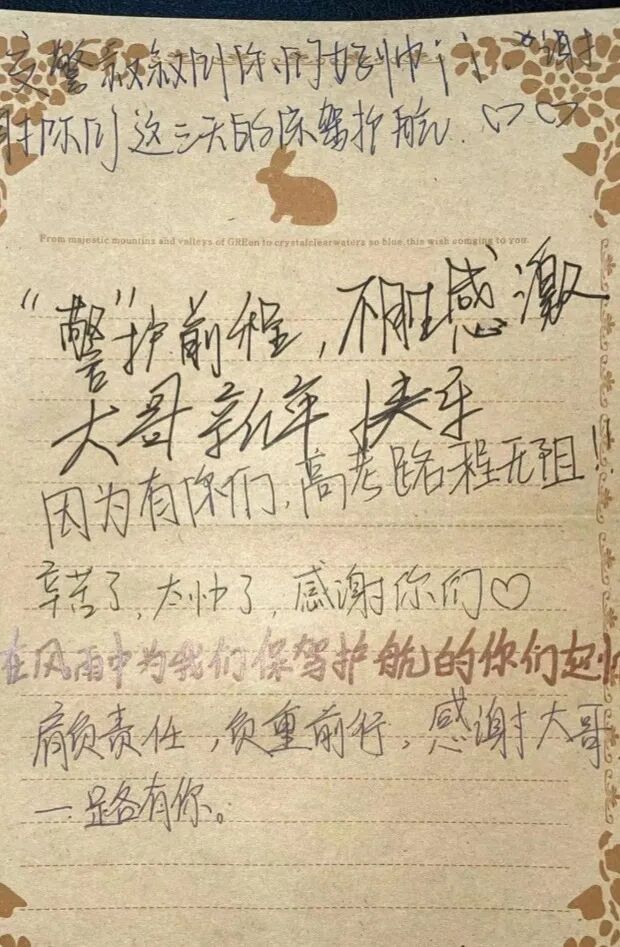 交警叔叔们你们超帅!!！谢
谢你们这三天的保驾护航. ♡♡
From majestic mountins and valleys of GREen to crystalclearwaters so blue, this wish comging to you.
“警”护前程，不胜感激
大哥新年快乐
因为有你们，高考路程无阻！
辛苦了，太帅了，感谢你们♡
在风雨中为我们保驾护航的你们超帅
肩负责任，负重前行，感谢大哥
一路有你。